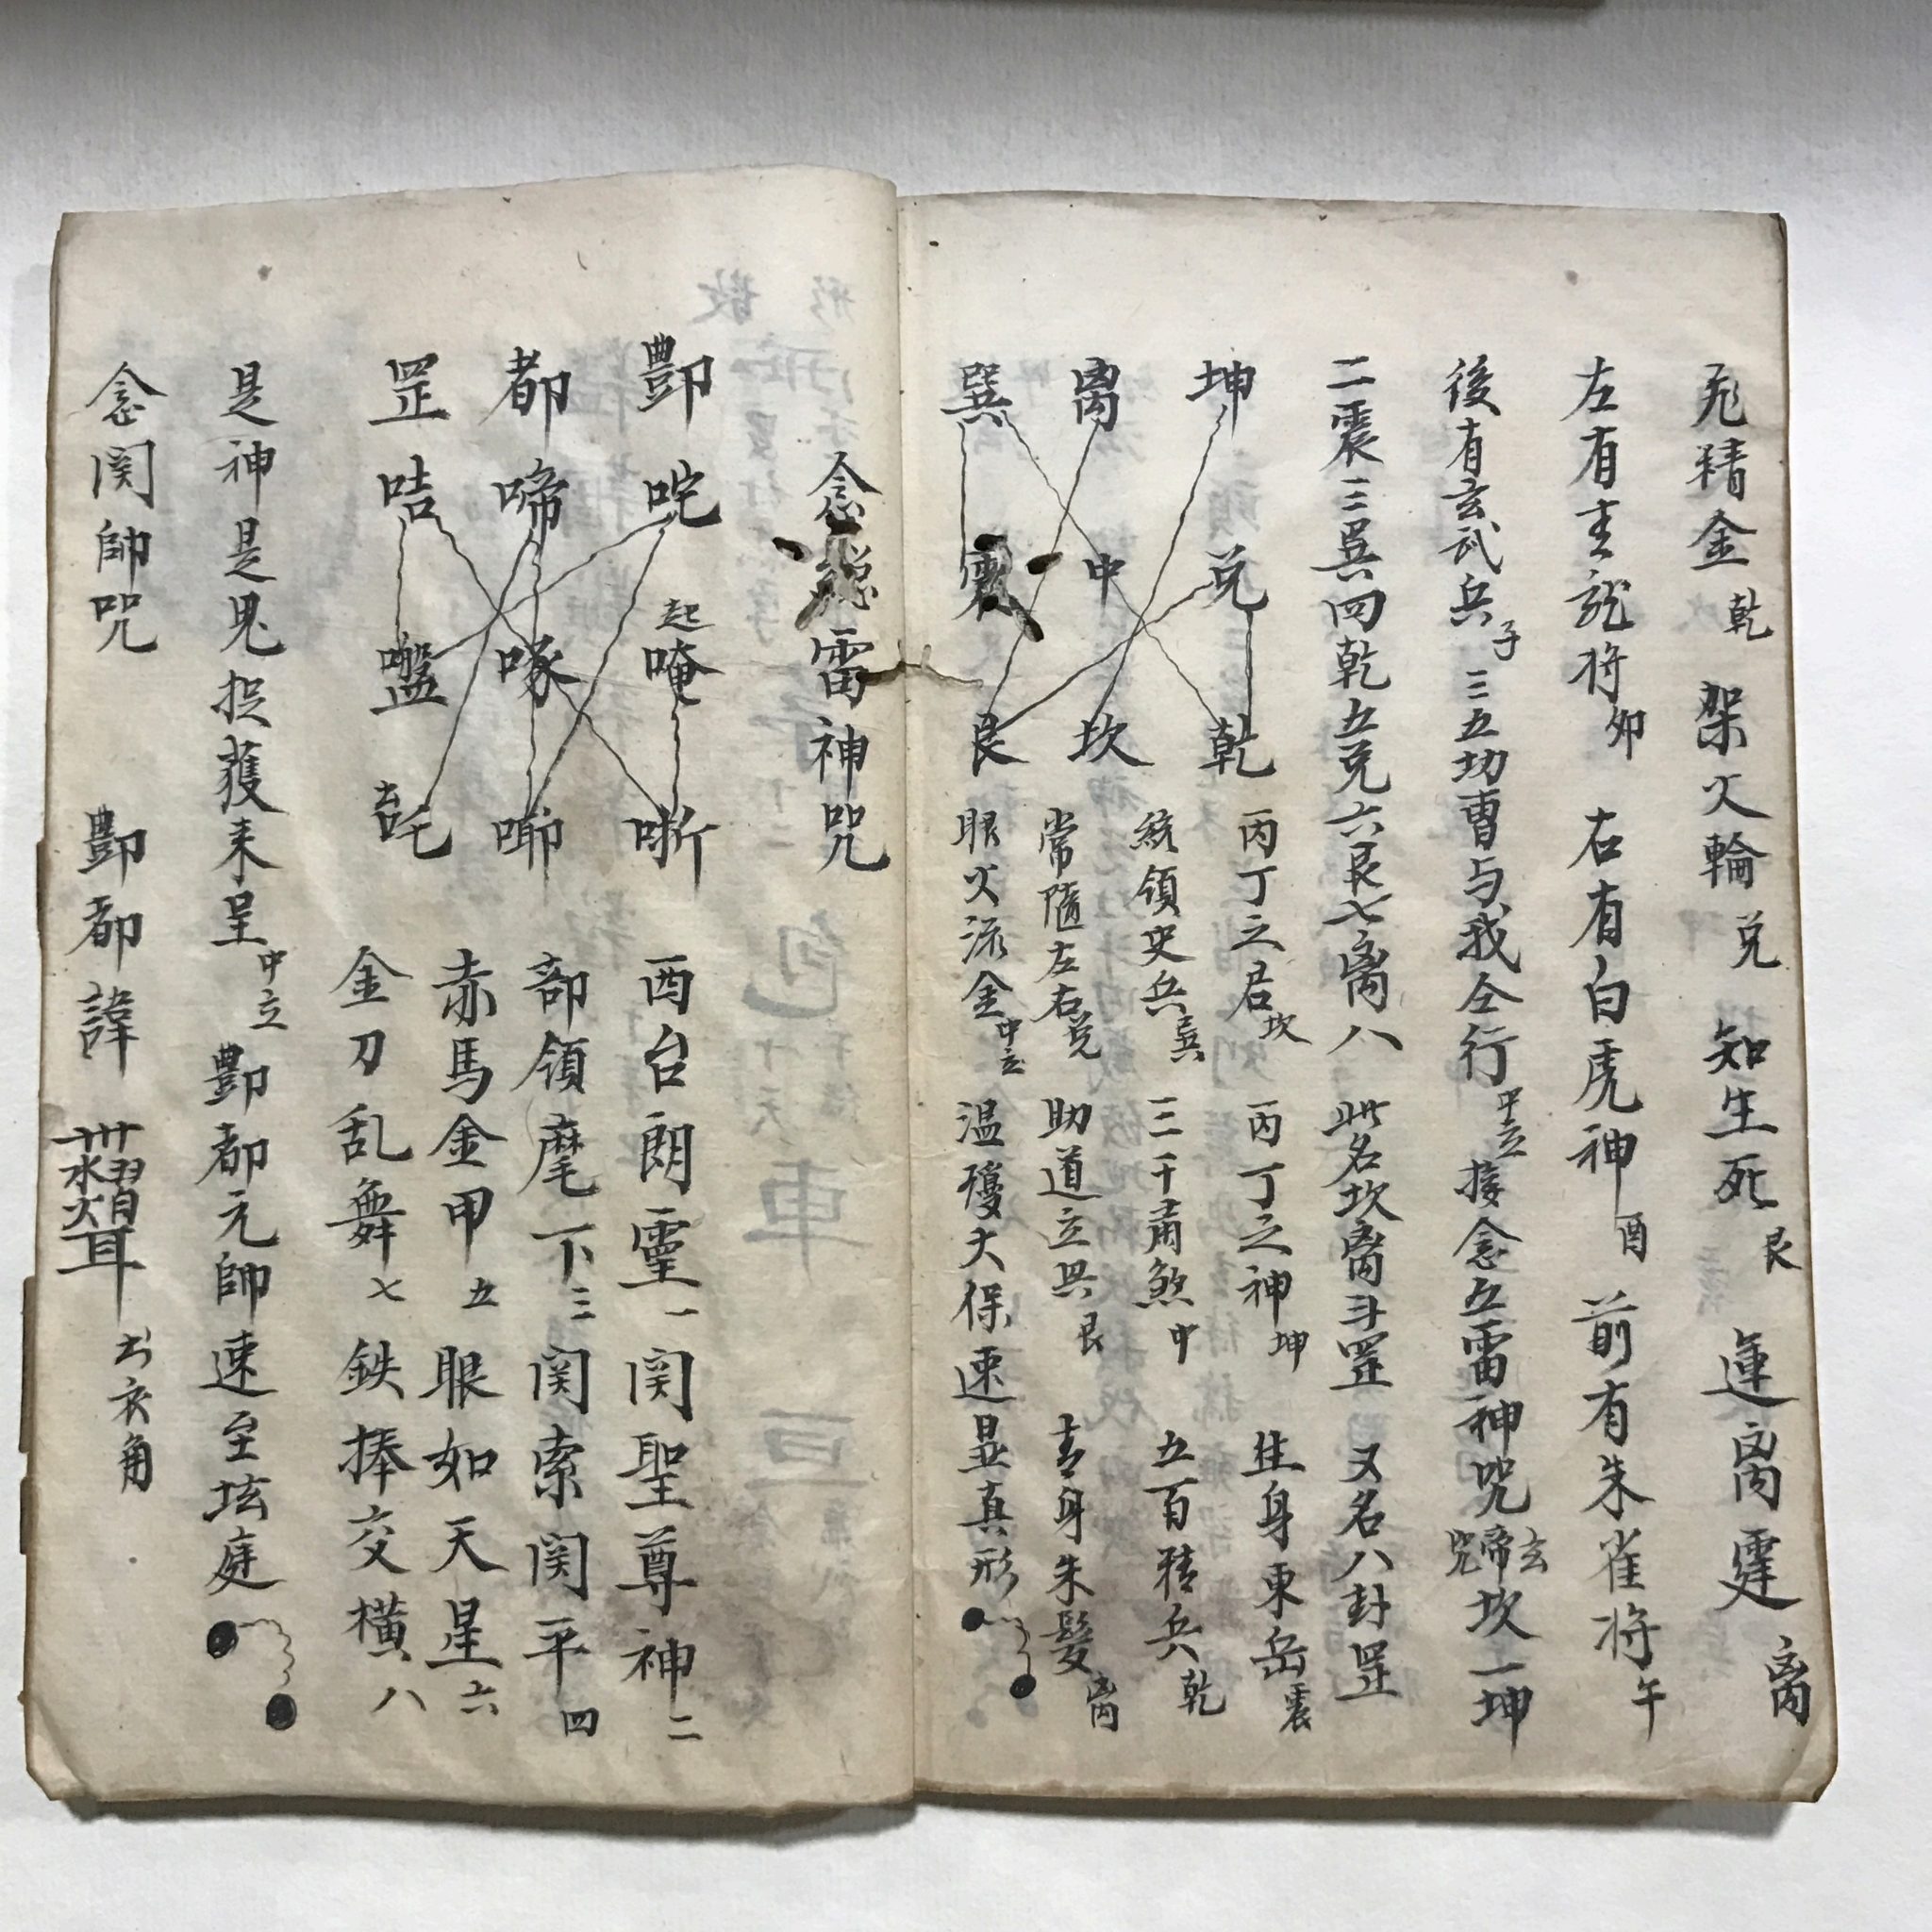 飛精金乾 架火輪兌 知生死艮 運离霆离
左有青龍將卯 右有白虎神酉 前有朱雀將午
後有玄武兵子 三五功曹与我仝行中立 接念五雷神咒 玄啼咒 坎一坤
二震三巽四乾五兌六艮七离八 此名坎离斗罡 又名八卦罡
坤 兌 乾
离 中 坎
巽 震 艮
丙丁之君坎 丙丁之神坤 住身東岳震
統領吏兵巽 三千甭煞中 五百猜兵乾
常隨左右兌 助道立興艮 青身朱髮离
眼火流金中立 温瓊大保速显真形
念 雷神咒
酆 咤 起唵 哳
都 啼 啄 唧
罡 咭 吒
酉台朗霊一 関聖尊神二
部領麾下三 関索関平四
赤馬金甲五 眼如天星六
金刀乱舞七 鉄捧交橫八
是神是鬼捉獲来呈中立 酆都元帥速至坛庭
念関帥咒 酆都諱 衣角